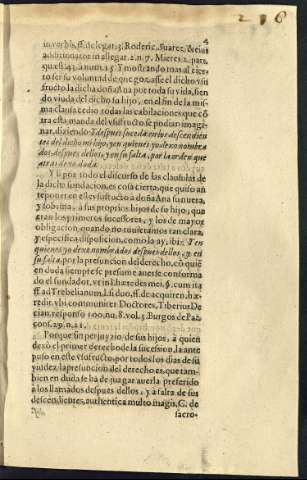 286
4
in verbis, ff. de legat. 3. Roderic. Suarez, & eius
addictionator in allegat. 2. n. 7. Mieres 2. part.
quæst. 43. à num. 15. Y mostrando mas al cier-
to ser su voluntad de que gozasse el dicho vsu
fructo la dicha doña Ana por toda su vida, sien
do viuda del dicho su hijo, en el fin de la mis-
ma clausula tiene todas las cabilaciones que cõ
tra esta manda del vsufructo se podian imagi-
nar, diziendo: Y despues suceda en los descendien
tes del dicho mi hijo, y en quienes yo dexo nombra-
dos, despues dellos, y en su falta, por la orden que
atras lo ordeno.
Y si por todo el discurso de las clausulas de
la dicha fundacion, es cosa cierta, que quiso an
teponer en este vsufructo a doña Ana su nuera,
y sobrina, à sus proprios hijos de su hijo, que
eran los primeros sucessores, y los de mayor
obligacion, quando no tuuieramos tan clara,
y especifica disposicion, como la ay, ibi: Y en
quienes yo dexo nombrados despues dellos, y en
su falta, por la presuncion del derecho, cõ quiẽ
en duda siempre se presume auerse conforma
do el fundador, vt in l. hæredes mei, §. cum ita
ff. ad Trebelianum, l. si duo, ff. de acquiren. hæ-
redit. vbi communiter Doctores, Tiberius De-
cian. responso 100. nu. 8. vol. 3. Burgos de Paz,
cons. 29. n. 21.
Porque sin perjuyzio, de sus hijos, à quien
dexò el primer derecho de la sucession, la ante
puso en este vsufructo, por todos los dias de su
viudez, la presuncion del derecho es, que tam-
bien en duda se ha de juzgar auerla preferido
à los llamados despues dellos, y à falta de sus
descendientes, authentica multo magis, C. de
sacro-